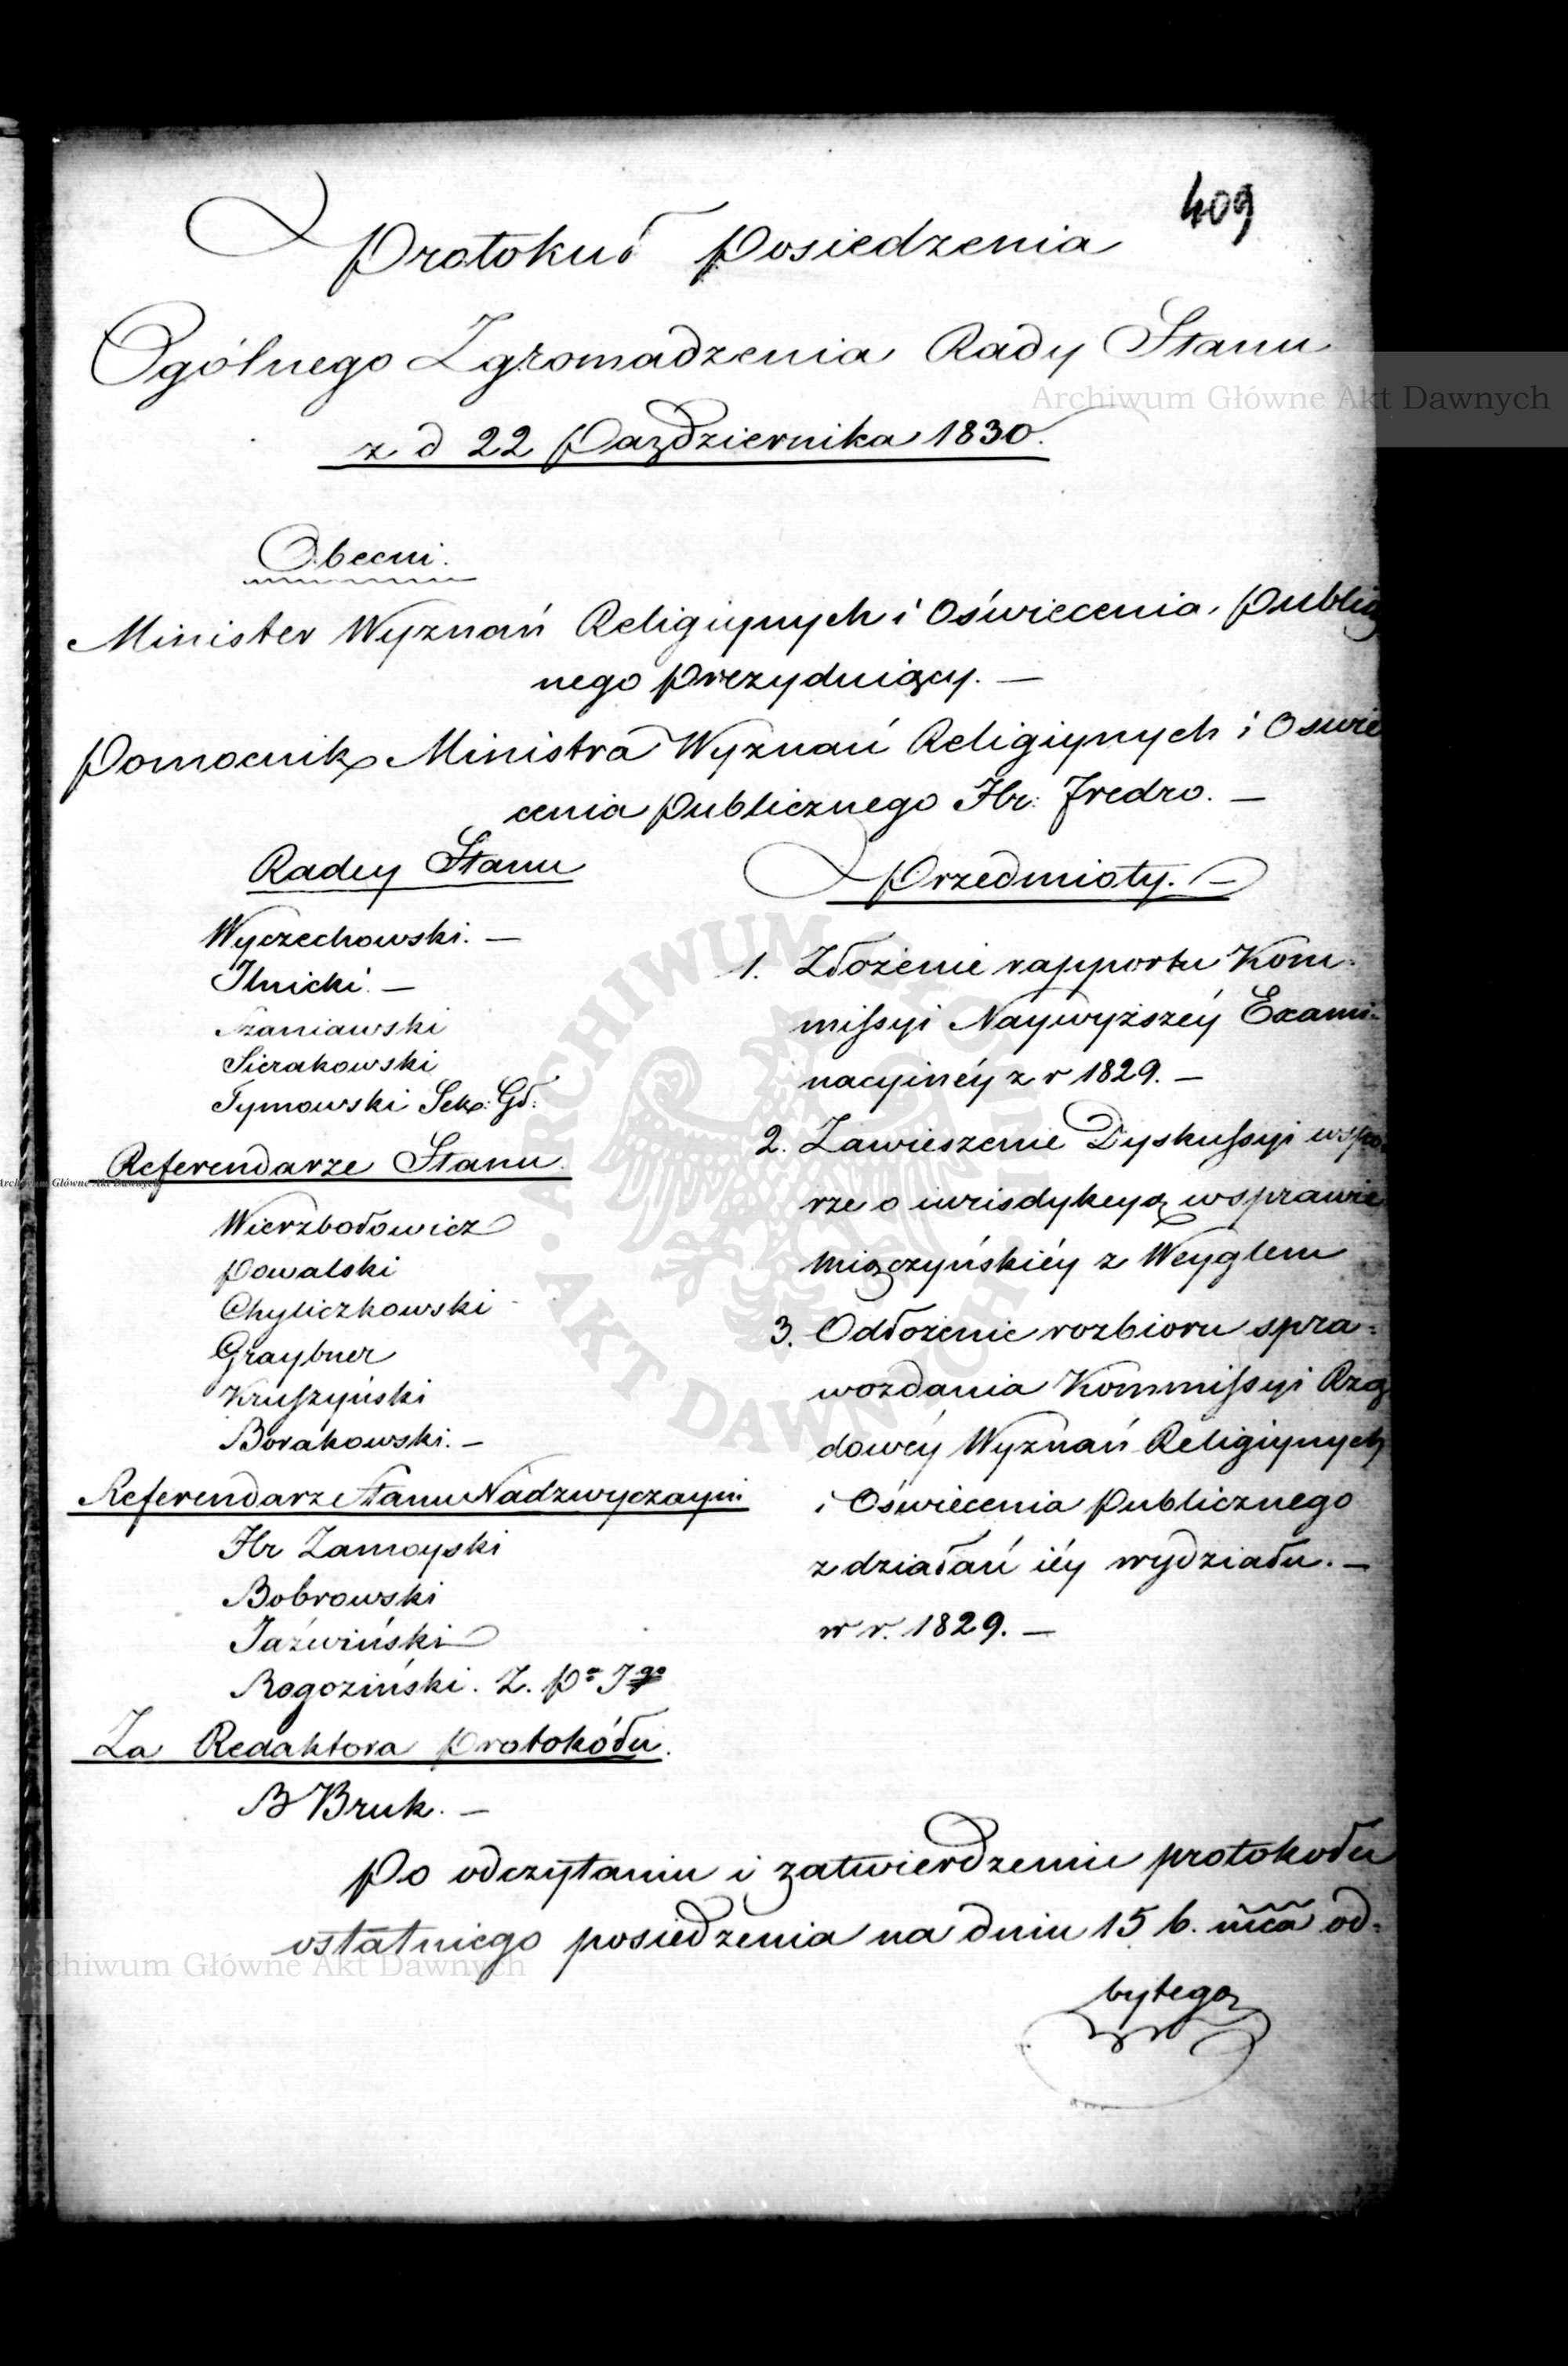 409
Protokuł Posiedzenia
Ogólnego Zgromadzenia Rady Stanu
z d 22 Października 1830.
Obecni.
Minister Wyznań Religiynych i Oświecenia Public
nego Prezyduiący. —
Pomocnik Ministra Wyznań Religiynych i Oswie
cenia Publicznego Hr: Fredro. —
Radcy Stanu
Wyczechowski. —
Ilnicki. —
Szaniawski
Sierakowski
Tymowski Sek: Gł:
Referendarze Stanu
Wierzbołowicz
Powalski
Chyliczkowski
Graybner
Kruszyński
Borakowski. —
Referendarze Stanu Nadzwyczayni
Hr Zamoyski
Bobrowski
Jaźwiński
Rogoziński. Z. Pa Igo
Za Redaktora Protokółu.
B Bruk. —
Przedmioty. —
1. Złożenie rapportu Kom-
missyi Naywyższéy Exami-
nacyinéy z r 1829. —
2. Zawieszenie Dyskussyi wspo-
rze o iurisdykcyą wsprawie
Miączyńskiéy z Weyglem
3. Odłożenie rozbioru spra-
wozdania Kommissyi Rzą
dowéy Wyznań Religiynych
i Oświecenia Publicznego
z działań iéy wydziału. —
w r. 1829. —
Po odczytaniu i zatwierdzeniu protokołu
ostatniego posiedzenia na dniu 15 b. mca od-
bytego
Archiwum Główne Akt Dawnych
Archiwum Główne Akt Dawnych
Archiwum Główne Akt Dawnych
ARCHIWUM GŁÓWNE · AKT DAWNYCH ·